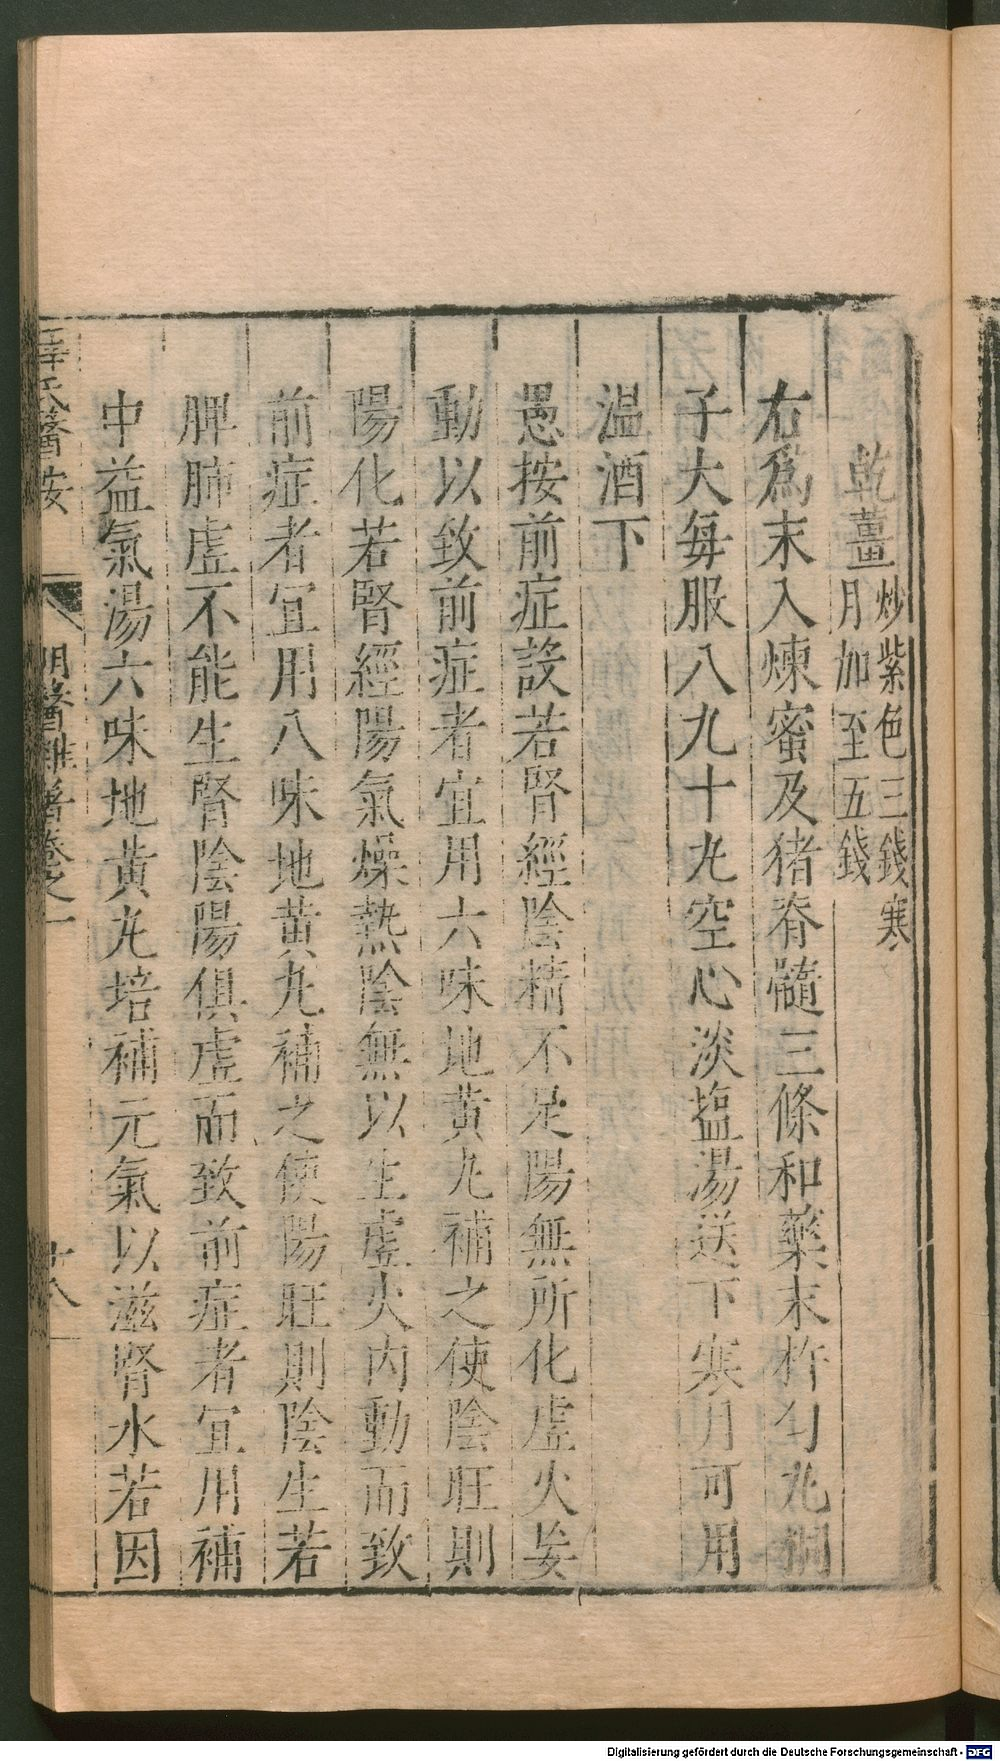 乾薑炒紫色三錢寒月加至五錢
右爲末入煉蜜及猪脊髓三條和藥末杵勻丸桐
子大每服八九十丸空心淡塩湯送下寒月可用
温酒下
愚按前症設若腎經陰精不足陽無所化虛火妄
動以致前症者宜用六味地黄丸補之使陰旺則
陽化若腎經陽氣燥熱陰無以生虛火内動而致
前症者宜用八味地黄丸補之使陽旺則陰生若
脾肺虛不能生腎陰陽俱虛而致前症者宜用補
中益氣湯六味地黄丸培補元氣以滋腎水若因
薛氏醫按
明醫雜著卷之一
廿八
Digitalisierung gefördert durch die Deutsche Forschungsgemeinschaft - DFG